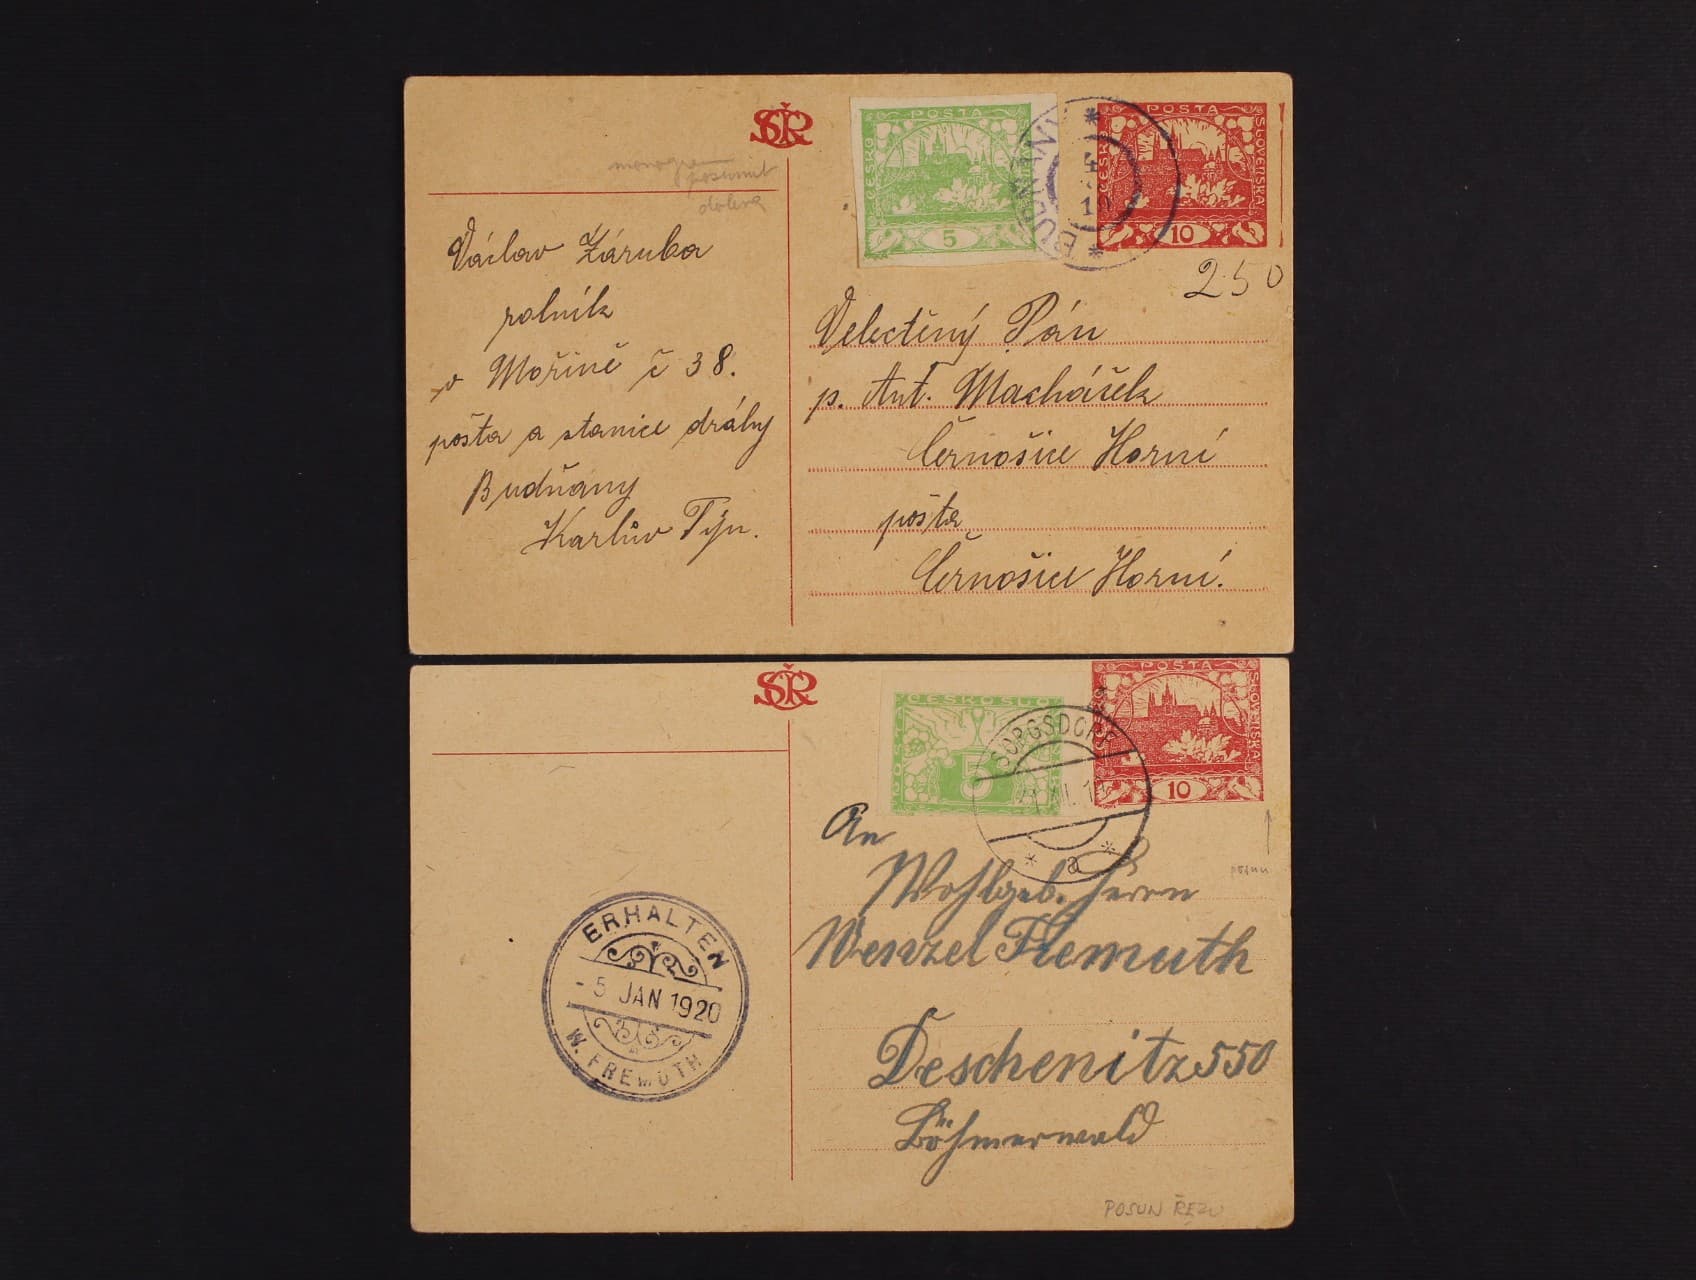 SČR
monogram
posunut
doleva
Václav Záruba
rolník
v Mořině č 38.
pošta a stanice dráhy
Budňany
Karlův Týn.
POSTA
ČESKO
5
BUDŇANY
4
19
POSTA
ČESKO
SLOVENSKA
10
250
Velectěný Pán
p. Ant. Macháček
Černošice Horní
pošta
Černošice Horní.
SČR
ČESKOSLO
POSTA
5
SORGSDORF
XII. 19
a
POSTA
SLOVENSKA
10
posun
An
Wohlgeb. Herrn
Wenzel Fremuth
Deschenitz 550
Böhmerwald
ERHALTEN
- 5 JAN 1920
W. FREMUTH
POSUN ŘEZU